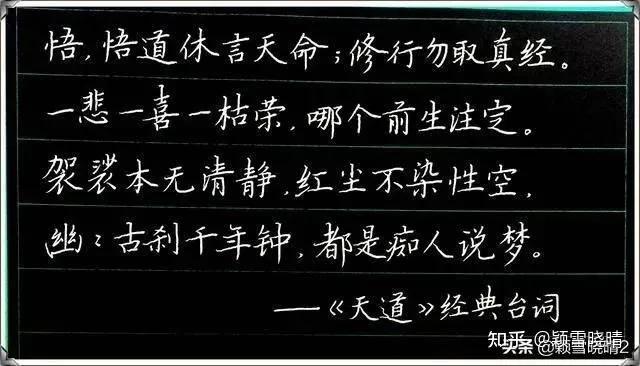 悟,悟道休言天命;修行勿取真经。
一悲一喜一枯荣,哪个前生注定。
袈裟本无清静,红尘不染性空,
幽幽古刹千年钟,都是痴人说梦。
——《天道》经典台词
知乎 @颖雪晓晴
头条 @颖雪晓晴2